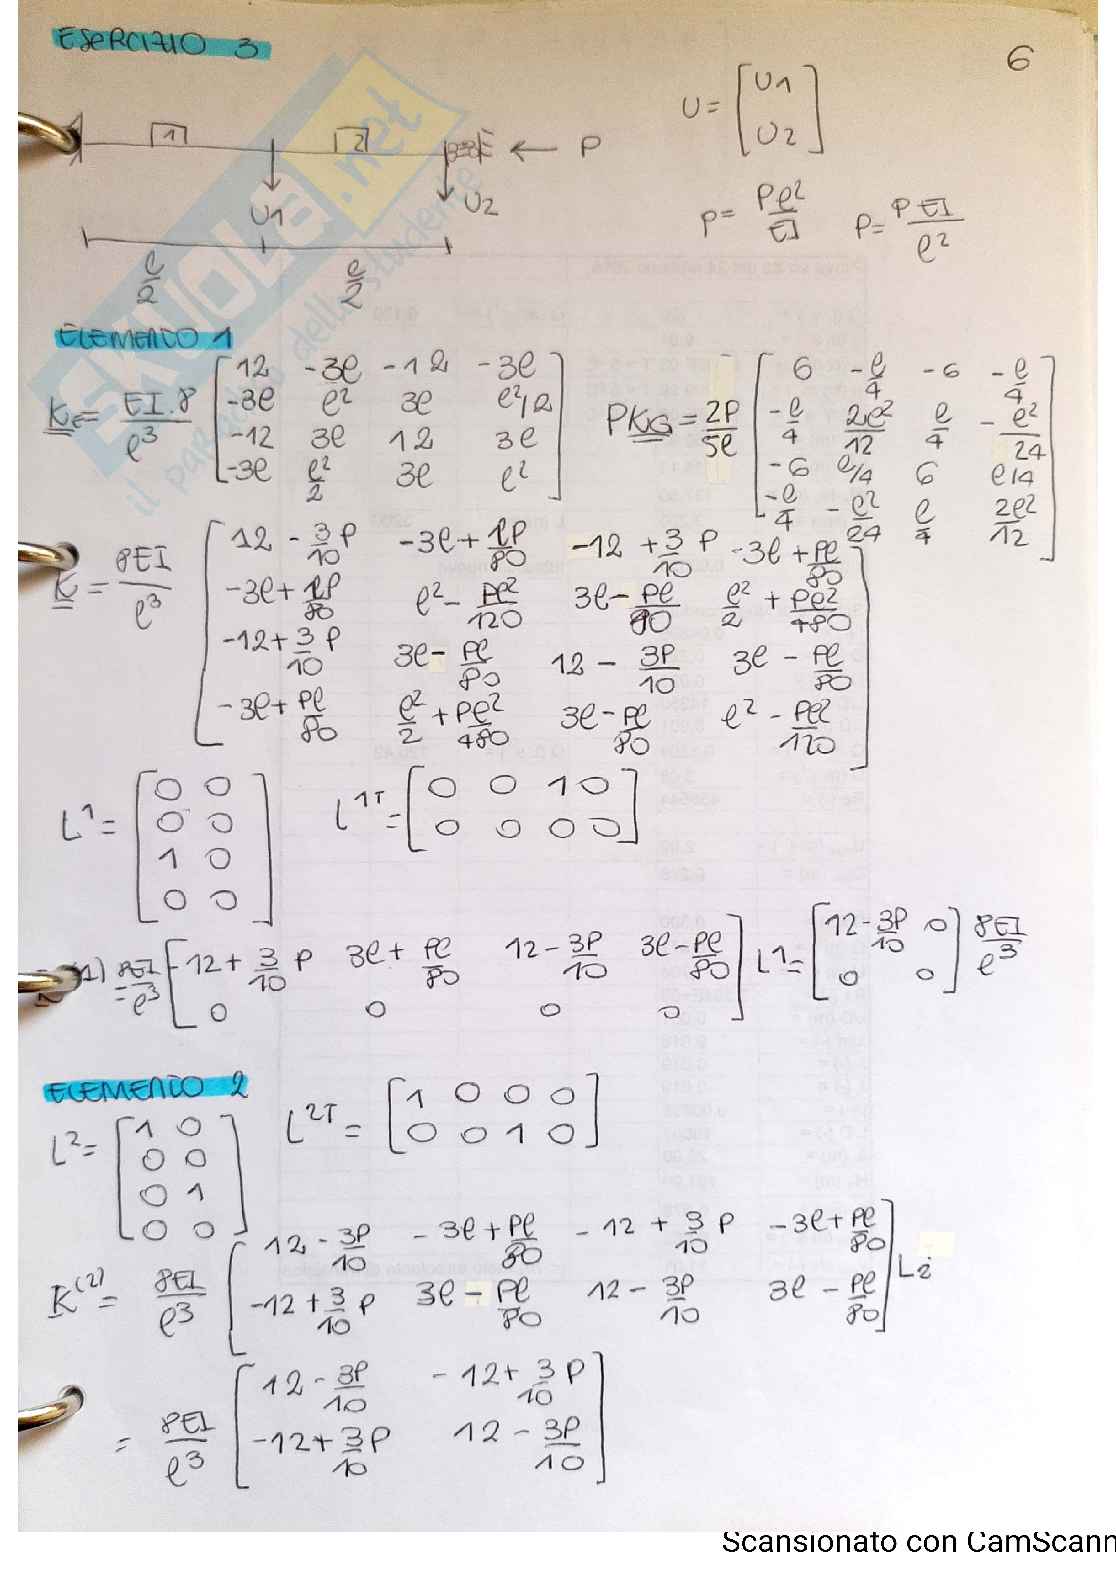 ESERCIZIO 3
6
1 2 ← P
U1 U2
ℓ/2 ℓ/2
U = [U1
U2]
p = Pℓ²/EI P = p EI/ℓ²
SKUOLA.net
il paradiso dello studente
ELEMENTO 1
Ke = EI·8/ℓ³ [12 -3ℓ -12 -3ℓ
-3ℓ ℓ² 3ℓ ℓ²/2
-12 3ℓ 12 3ℓ
-3ℓ ℓ²/2 3ℓ ℓ²]
PKG = 2P/5ℓ [6 -ℓ/4 -6 -ℓ/4
-ℓ/4 2ℓ²/12 ℓ/4 -ℓ²/24
-6 ℓ/4 6 ℓ/4
-ℓ/4 -ℓ²/24 ℓ/4 2ℓ²/12]
K = 8EI/ℓ³ [12 - 3/10 P -3ℓ + ℓP/80 -12 + 3/10 P -3ℓ + Pℓ/80
-3ℓ + ℓP/80 ℓ² - Pℓ²/120 3ℓ - Pℓ/80 ℓ²/2 + Pℓ²/480
-12 + 3/10 P 3ℓ - Pℓ/80 12 - 3P/10 3ℓ - Pℓ/80
-3ℓ + Pℓ/80 ℓ²/2 + Pℓ²/480 3ℓ - Pℓ/80 ℓ² - Pℓ²/120]
L¹ = [0 0
0 0
1 0
0 0]
L¹ᵀ = [0 0 1 0
0 0 0 0]
(1) = 8EI/ℓ³ [-12 + 3/10 P 3ℓ + Pℓ/80 12 - 3P/10 3ℓ - Pℓ/80
0 0 0 0] L¹ = [12 - 3P/10 0
0 0] 8EI/ℓ³
ELEMENTO 2
L² = [1 0
0 0
0 1
0 0]
L²ᵀ = [1 0 0 0
0 0 1 0]
K⁽²⁾ = 8EI/ℓ³ [12 - 3P/10 -3ℓ + Pℓ/80 -12 + 3/10 P -3ℓ + Pℓ/80
-12 + 3/10 P 3ℓ - Pℓ/80 12 - 3P/10 3ℓ - Pℓ/80] L2
= 8EI/ℓ³ [12 - 3P/10 -12 + 3/10 P
-12 + 3/10 P 12 - 3P/10]
Scansionato con CamScann